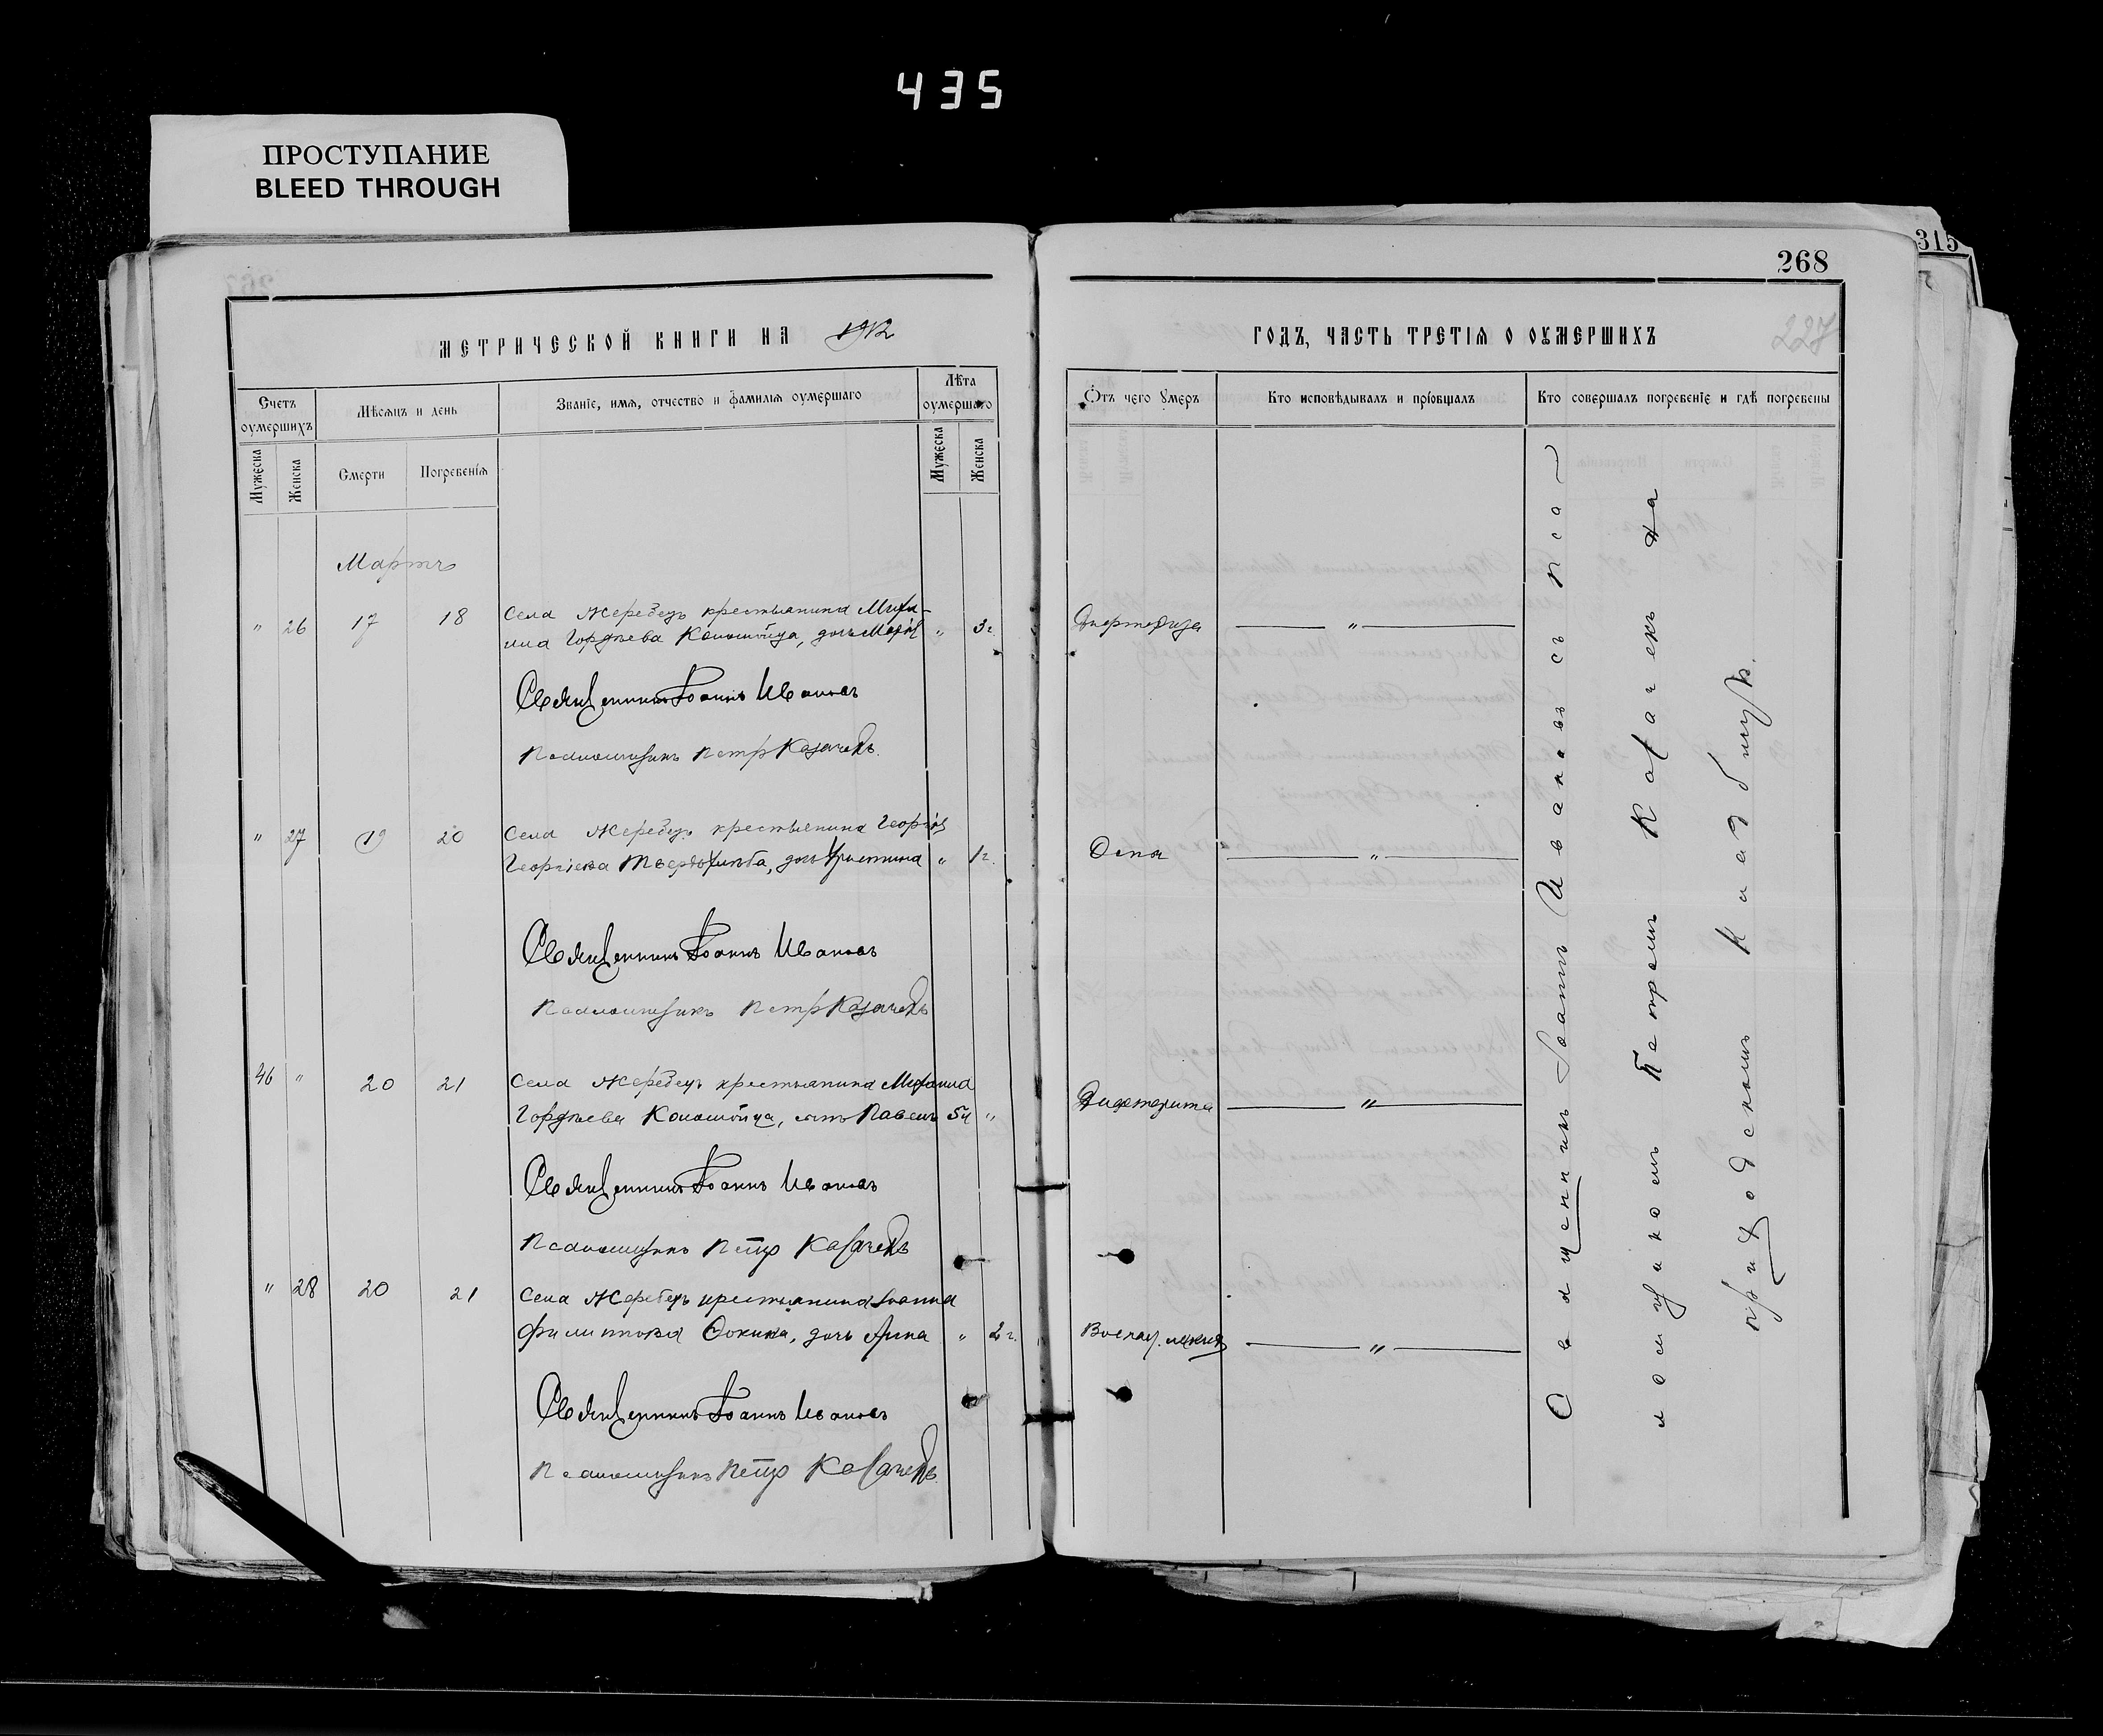 435
ПРОСТУПАНИЕ
BLEED THROUGH
315
268
227
МЕТРИЧЕСКОЙ КНИГИ НА 1912
ГОДЪ, ЧАСТЬ ТРЕТІЯ О ОУМЕРШИХЪ
Счетъ оумершихъ
Мѣсяцъ и день
Званіе, имя, отчество и фамилія оумершаго
Лѣта оумершаго
Отъ чего умеръ
Кто исповѣдывалъ и пріобщалъ
Кто совершалъ погребеніе и гдѣ погребены
Мужеска
Женска
Смерти
Погребенія
Мужеска
Женска
Мартъ
" 26 17 18 Села Жеребецъ крестьянина Михаи-
ила Гордѣева Коломойца, дочь Марія " 3 г. — " —
Священникъ Іоаннъ Ивановъ
Псаломщикъ Петр Казачекъ.
" 27 19 20 Села Жеребецъ крестьянина Георгія
Георгіева Твердохлѣба, дочь Христина " 1 г. Оспа — " —
Священникъ Іоаннъ Ивановъ
Псаломщикъ Петр Казачекъ
46 " 20 21 Села Жеребецъ крестьянина Михаила
Гордѣева Коломойца, сынъ Павелъ 5 м " Дифтерита — " —
Священникъ Іоаннъ Ивановъ
Псаломщикъ Петр Казачекъ
" 28 20 21 Села Жеребецъ крестьянина Іоанна
Филиппова Фокина, дочь Анна " 2 г. — " —
Священникъ Іоаннъ Ивановъ
Псаломщикъ Петр Казачекъ
Священникъ Іоаннъ Ивановъ съ пса-
ломщикомъ Петромъ Казачекъ на
приходскомъ кладбищѣ.